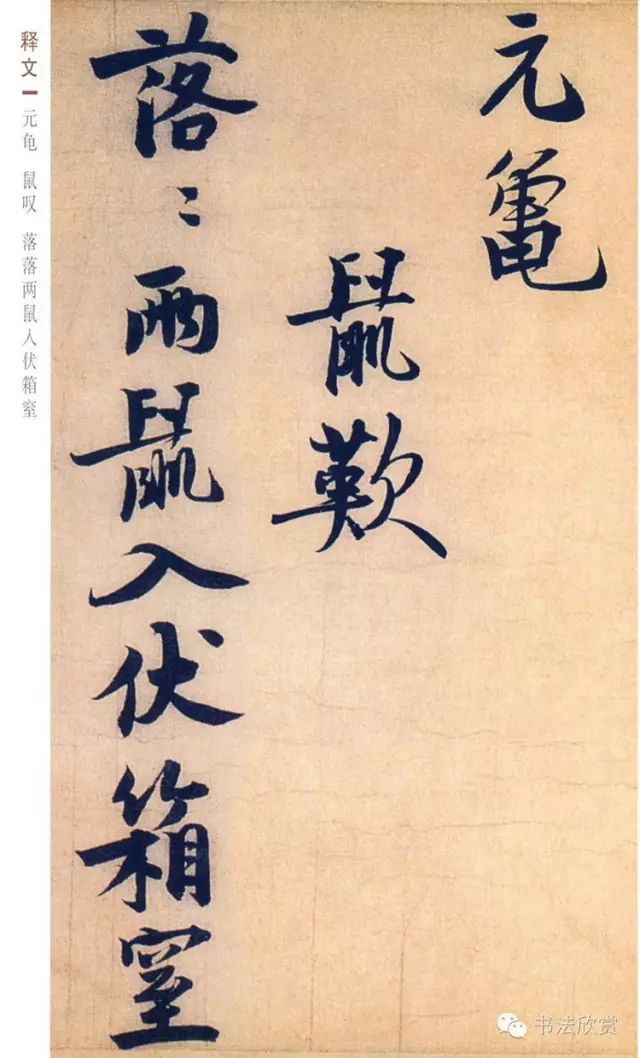 元龜
鼠歎
落〻兩鼠入伏箱窒
释文
元龟 鼠叹 落落两鼠入伏箱窒
书法欣赏